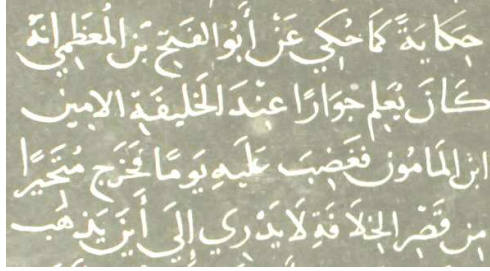 حكايةً كما حُكي عَنْ أَبُو الفَتح بْن المُعَظم انهُ
كَانَ يُعَلِم جوَارًا عنْدَ الخَليفَة الامين
ابن المَامون فغَضبَ عَلَيهِ يَومًا فخَرَج مُتَحَيرًا
مِن قَصْر الخِلَافَةِ لَا يَدْرِي إِلَى أَينَ يَذهَب